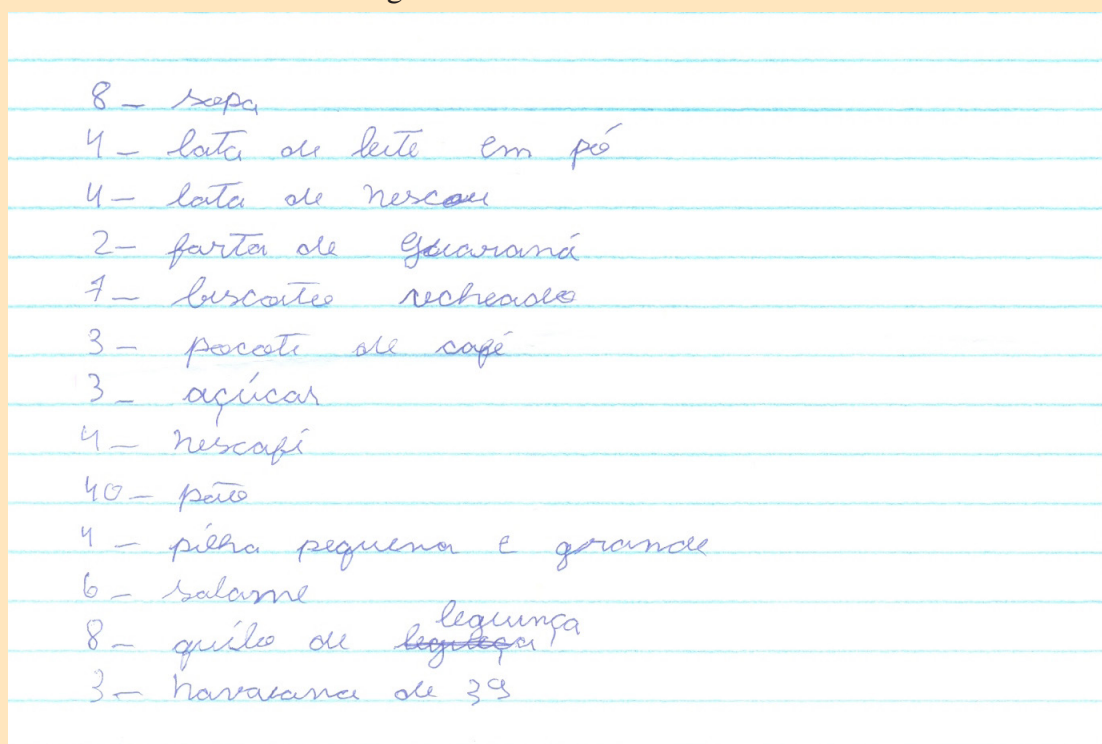 8 - sopa
4 - lata de leite em pó
4 - lata de nescau
2 - farta de guaraná
7 - biscoito recheado
3 - pacote de café
3 - açúcar
4 - nescafé
40 - pão
4 - pilha pequena e grande
6 - salame
8 - quilo de legunça
3 - havaiana de 39